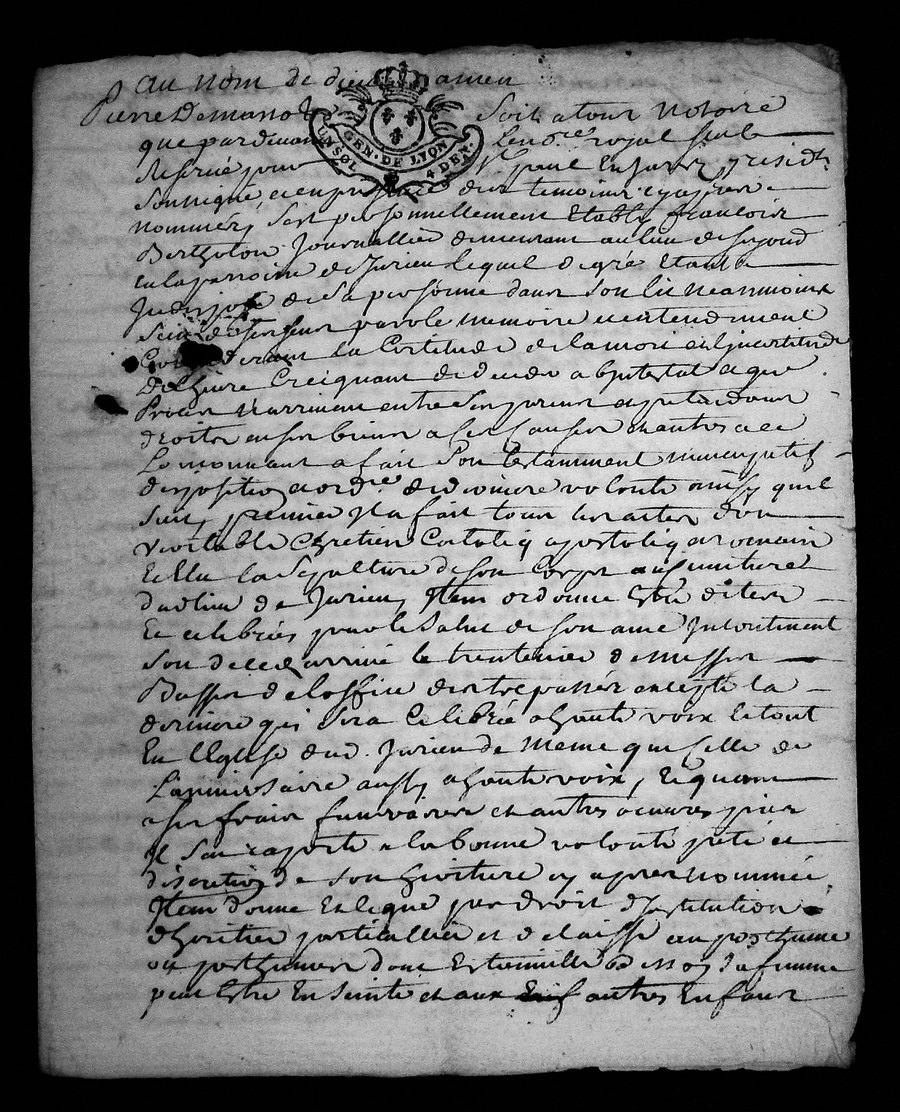 au nom de dieu amen
Pierre Demassol Soit atous Notoire
que pardevant le no.re royal
GEN. DE LYON
UN SOL 4 DEN.
Reservé pour St paul En Jarez resid.t
Soussigné, et en presence des temoins cy apres
nommés, Sest personnellement Etably francois
Bertholon Journallier demeurant au lieu de
en la parroisse de Jurieu lequel de gré Etant
Indispose de Sa personne dans Son lit neanmoins
Sain de Ses Sens parole memoire et entendement
Considerant la Certitude de la mort et Jncertitude
De lheure Creignant de deceder abJntestat et que
Proces Narrivent entre Ses
droits en Ses biens a Ses Causes et autres a ce
Le mouvant a fait Son testamment nuncupatif
disposition et ord.ce de derniere volonté ainsy quil
Suit, premier Jl a fait tous les actes dun
veritable Chretien Catoliq apostoliq et romain
Eellu la Sepulture de Son Corps au Cimitiere
dudlieu de Jurieu, Jtem ordonne Estre dites
Et celebrées pour le Salut de Son ame Jncontinent
Son deced arrivé le trentenier de Messes
Basses de loffice des trepassés excepte la
derniere qui Sera Celebrée a haute voix le tout
En lEglise dud. Jurieu de Meme que Celle de
Lanniversaire aussy a haute voix, Et quant
a Ses frais funeraires et autres oeuvres pies
Jl Sen raporte a la bonne volonté pieté et
discretion de Son heritiere cy apres nommée
Jtem donne Et legue par droit dJnstitution
dheritier particullier et delaisse au posthume
ou posthumes dont Estiennette Besson Sa femme
peut Estre En Seinte et aux autres Enfans